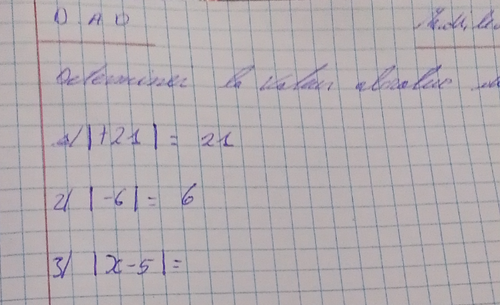 D A D
Determiner la valeur absolue
1) |+21| = 21
2) |-6| = 6
3) |x-5| =